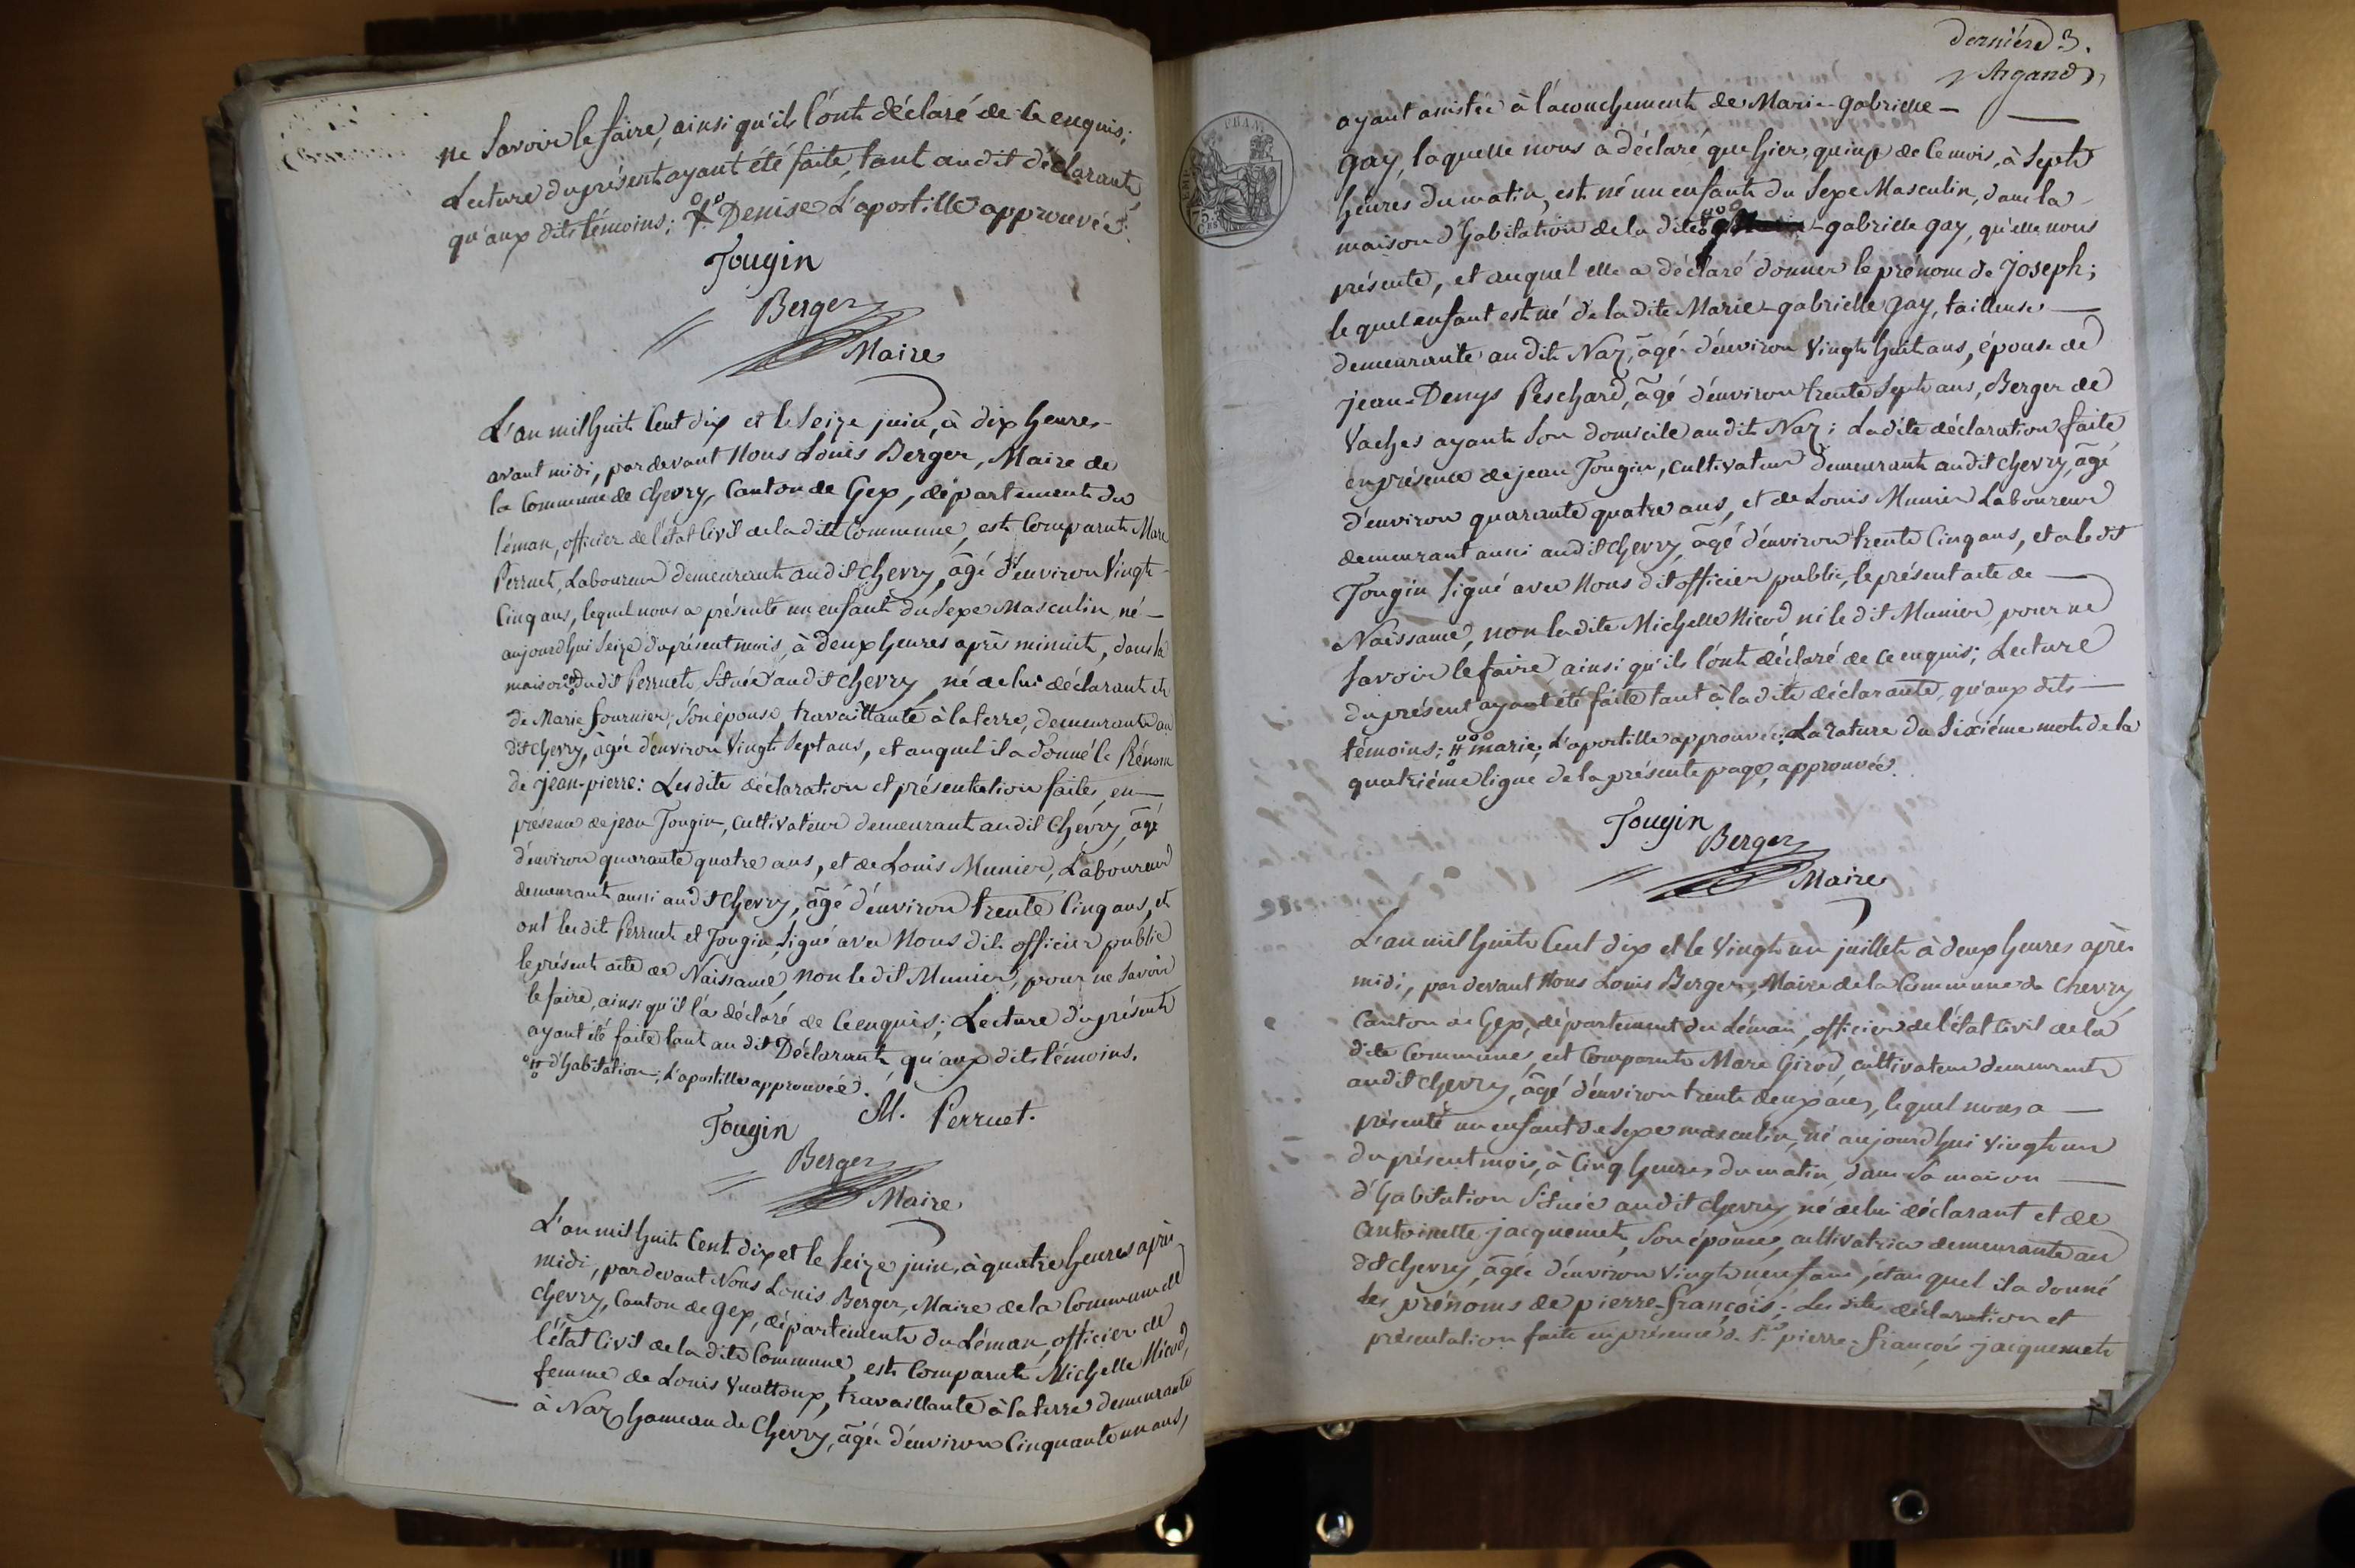 ne Savoir le faire, ainsi qu'ils l'ont déclaré de ce enquis;
Lecture du présent ayant été faite, tant au dit déclarant,
qu'aux dits témoins; Denise L'apostille approuvée.
Tougin
Berger
Maire
L'an mil huit Cent dix et le Seize juin, à dix heures
avant midi, par devant Nous Louis Berger, Maire de
la Commune de Chevry, Canton de Gex, département du
léman, officier de l'état Civil de la dite Commune, est Comparut Marc
Perruet, Laboureur demeurant au dit Chevry, âgé d'environ Vingt
Cinq ans, lequel nous a présenté un enfant du Sexe Masculin, né —
aujourd'hui Seize du présent mois, à deux heures après minuit, dans la
maison du dit Perruet, Située au dit Chevry, né de lui déclarant et
de Marie fournier, Son épouse, travaillante à la terre, demeurante au
dit Chevry, âgée d'environ Vingt Sept ans, et auquel il a donné le Prénom
de jean-pierre: Les dite déclaration et présentation faites, en —
présence de jean Tougin, Cultivateur demeurant au dit Chevry, âgé
d'environ quarante quatre ans, et de Louis Munier, Laboureur
demeurant aussi au dit Chevry, âgé d'environ trente Cinq ans, et
ont les dit Perruet et Tougin, Signé avec Nous dit officier public
le présent acte de Naissance, non le dit Munier, pour ne Savoir
le faire, ainsi qu'il l'a déclaré de Ce enquis; Lecture du présent
ayant été faite tant au dit Déclarant, qu'aux dits témoins.
d'habitation; L'apostille approuvée.
Tougin M. Perruet.
Berger
Maire
L'an mil huit Cent dix et le Seize juin, à quatre heures après
midi, par devant Nous Louis Berger, Maire de la Commune de
Chevry, Canton de Gex, département du Léman, officier de
l'état Civil de la dite Commune, est Comparut Michelle Nicod,
femme de Louis Vuattoux, travaillante à la terre demeurante
à Naz hameau de Chevry, âgée d'environ Cinquante un ans,
dernière 3.
Argand
ayant assistée à l'acouchement de Marie-gabrielle —
gay, laquelle nous a déclaré que hier, quinze de Ce mois, à Sept
heures du matin, est né un enfant du Sexe Masculin, dans la
maison d'habitation de la dite -gabrielle gay, qu'elle nous
présente, et auquel elle a déclaré donner le prénom de Joseph;
le quel enfant est né de la dite Marie-gabrielle gay, tailleuse —
demeurante au dit Naz, âgé d'environ Vingt huit ans, épouse de
jean-Denys Peschard, âgé d'environ trente Sept ans, Berger de
Vaches ayant Son domicile au dit Naz; Ladite déclaration faite
en présence de jean Tougin, Cultivateur demeurant au dit Chevry, âgé
d'environ quarante quatre ans, et de Louis Munier Laboureur
demeurant aussi au dit Chevry, âgé d'environ trente Cinq ans, et a le dit
Tougin Signé avec Nous dit officier public, le présent acte de —
Naissance, non la dite Michelle Nicod ni le dit Munier, pour ne
Savoir le faire, ainsi qu'ils l'ont déclaré de ce enquis; Lecture
du présent ayant été faite tant à la dite déclarante, qu'aux dits —
témoins; marie, L'apostille approuvée; La rature du Sixiéme mot de la
quatriéme ligne de la présente page, approuvée.
Tougin
Berger
Maire
L'an mil huit Cent dix et le Vingt un juillet à deux heures après
midi, par devant Nous Louis Berger, Maire de la Commune de Chevry,
Canton de Gex, département du Léman, officier de l'état Civil de la
dite Commune, est Comparut Marc Girod, cultivateur demeurant
au dit Chevry, âgé d'environ trente deux ans, lequel nous a —
présenté un enfant de Sexe masculin, né aujourd'hui Vingt un
du présent mois, à Cinq heures du matin, dans Sa maison —
d'habitation Située au dit Chevry, né de lui déclarant et de
Antoinette jacquemet, Son épouse, cultivatrice demeurante au
dit Chevry, âgée d'environ Vingt neuf ans, et auquel il a donné
les prénoms de pierre-françois; Les dites déclaration et
présentation faite en présence de Sr. pierre-françois jacquemet